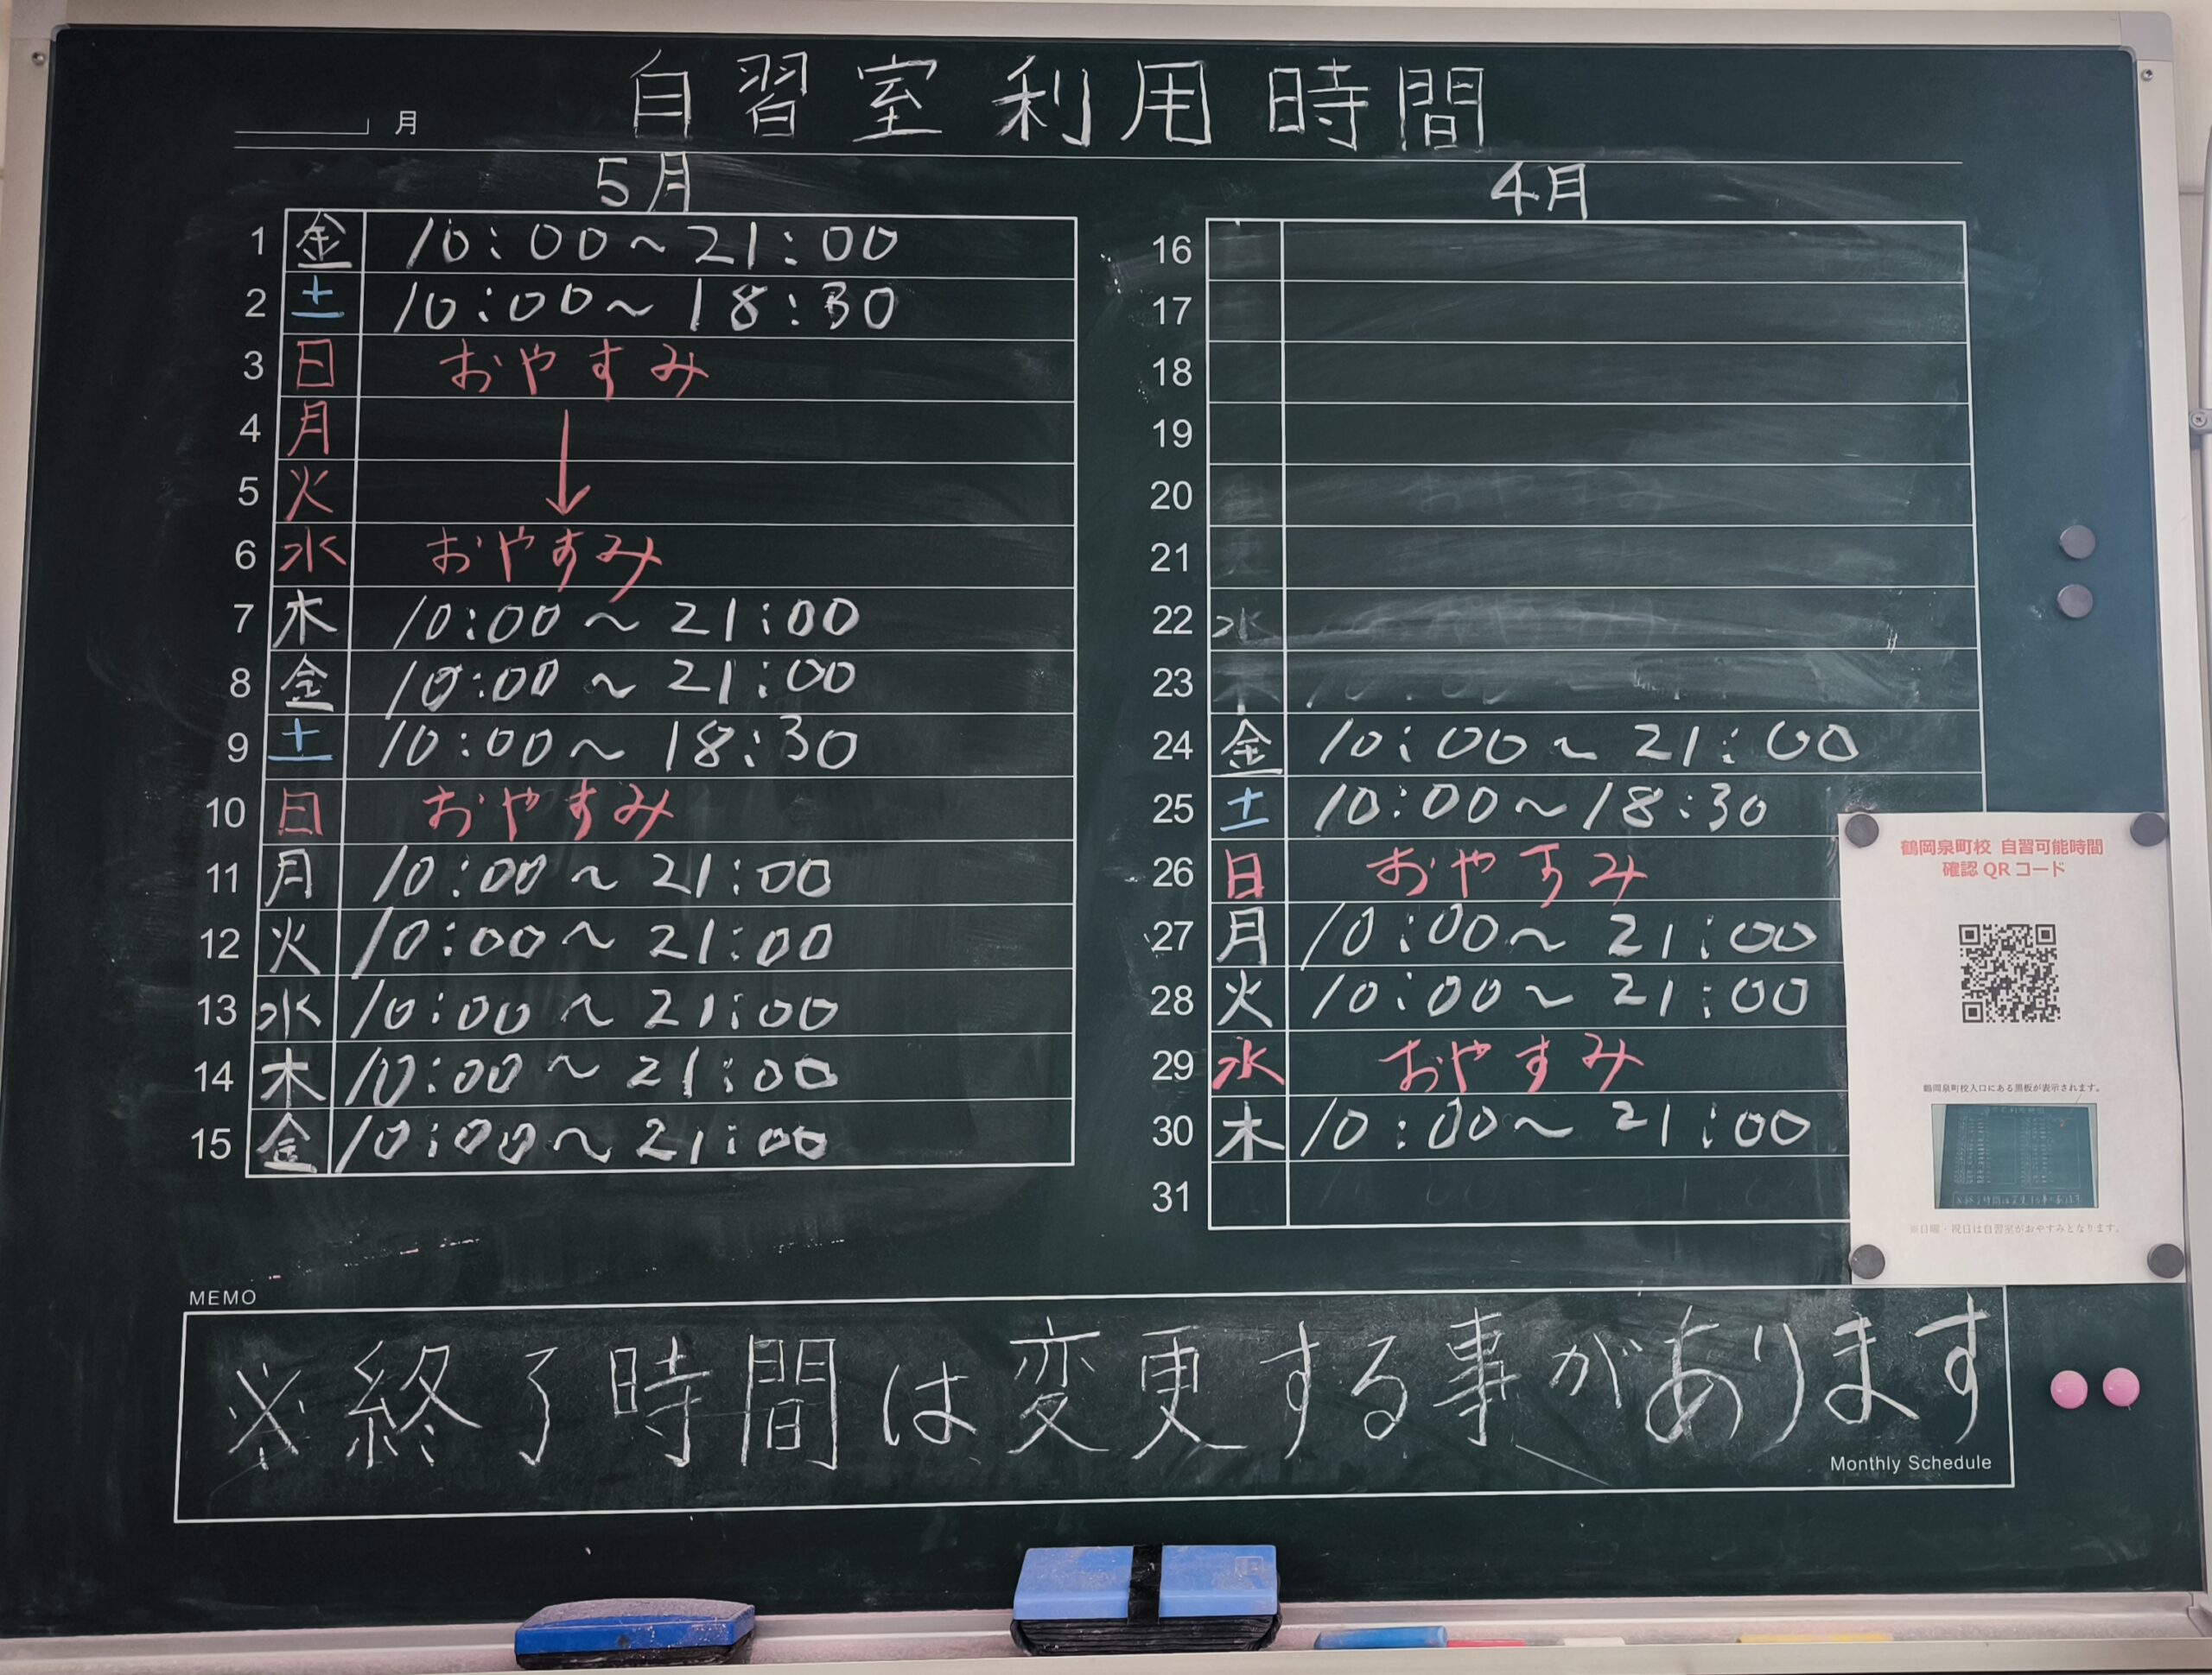 自習室利用時間
月
5月
1 金 10:00~21:00
2 土 10:00~18:30
3 日 おやすみ
4 月
5 火
6 水 おやすみ
7 木 10:00~21:00
8 金 10:00~21:00
9 土 10:00~18:30
10 日 おやすみ
11 月 10:00~21:00
12 火 10:00~21:00
13 水 10:00~21:00
14 木 10:00~21:00
15 金 10:00~21:00
4月
16
17
18
19
20
21
22 水
23 木
24 金 10:00~21:00
25 土 10:00~18:30
26 日 おやすみ
27 月 10:00~21:00
28 火 10:00~21:00
29 水 おやすみ
30 木 10:00~21:00
31
鶴岡泉町校 自習可能時間
確認QRコード
鶴岡泉町校入口にある黒板が表示されます。
※日曜・祝日は自習室がおやすみとなります。
MEMO
※終了時間は変更する事があります
Monthly Schedule